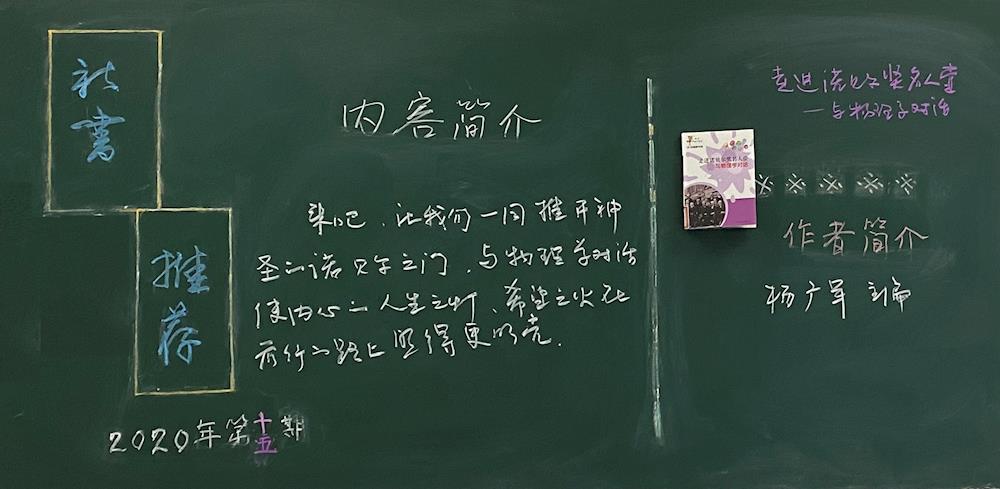 新书
推荐
2020年第十五期
内容简介
来吧，让我们一同推开神
圣的诺贝尔之门，与物理学对话
使内心的人生之灯、希望之火在
前行的路上照得更明亮．
走进诺贝尔奖名人堂
—与物理学对话
走进诺贝尔奖名人堂
与物理学对话
※ ※ ※ ※ ※
作者简介
杨广军 主编